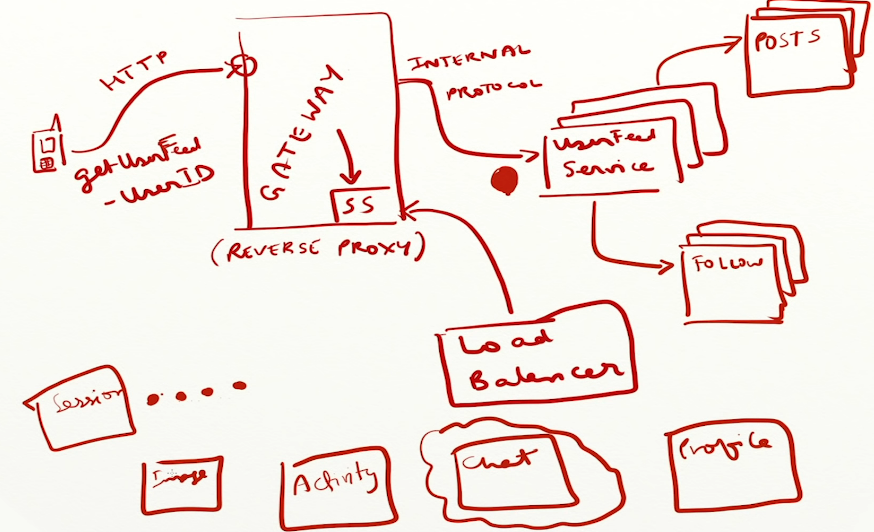 HTTP
getUserFeed
-UserID
GATEWAY
SS
(REVERSE PROXY)
INTERNAL
PROTOCOL
UserFeed
Service
POSTS
FOLLOW
Load
Balancer
Session
Image
Activity
Chat
Profile